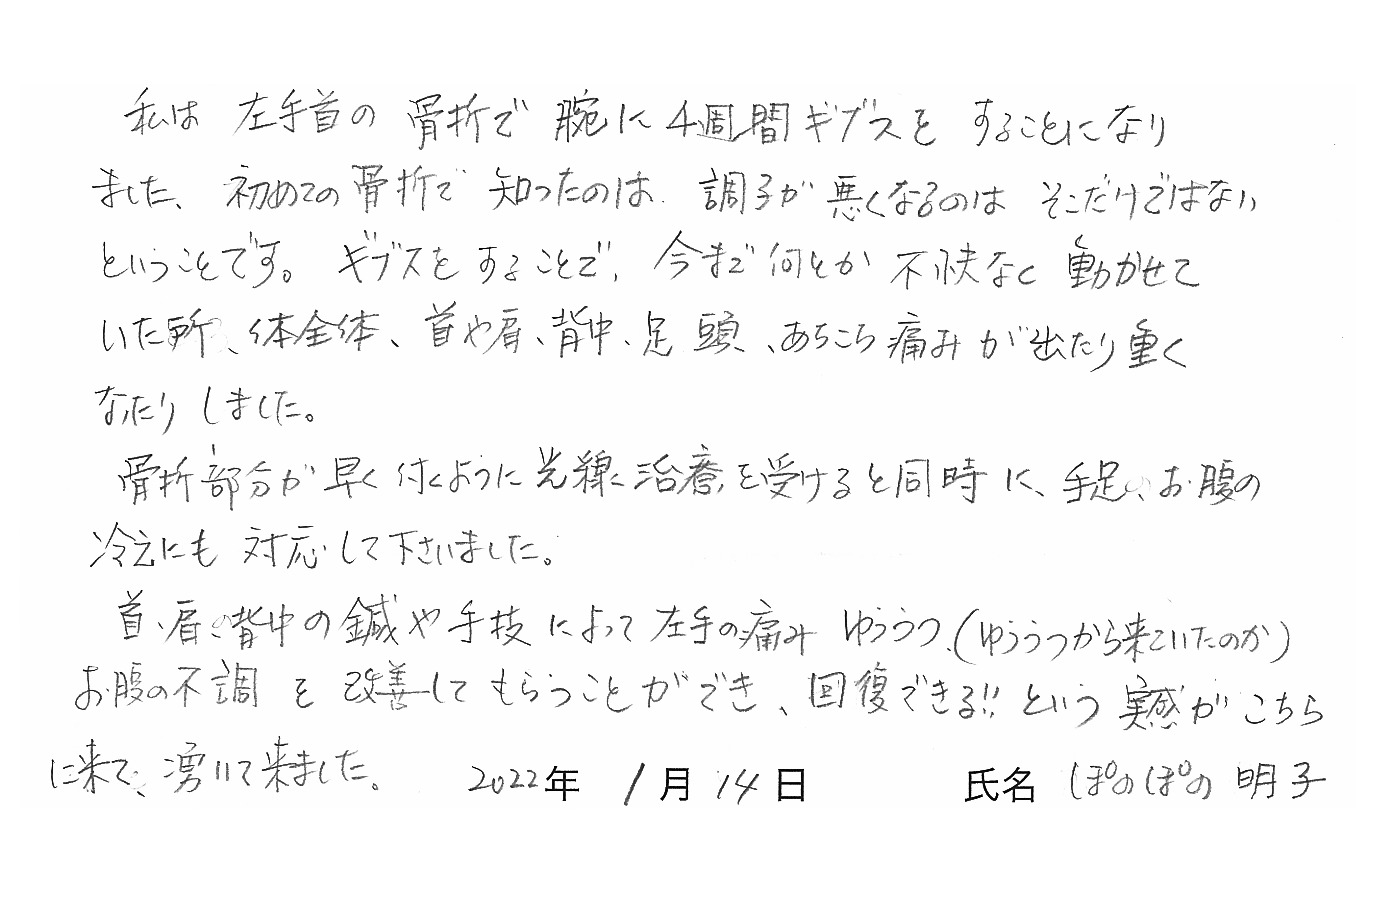 私は 左手首の 骨折で 腕に 4週間 ギブスを することになり
ました、初めての骨折で 知ったのは 調子が 悪くなるのは そこだけではない
ということです。 ギブスを することで、今まで 何とか 不快なく 動かせて
いた所、体全体、首や肩、背中、足 頭、あちこち 痛みが出たり 重く
なったり しました。
骨折部分が 早く 付くように 光線治療を受けると同時に、手足、お腹の
冷えにも 対応して下さいました。
首、肩、背中の 鍼や 手技 によって 左手の痛み ゆううつ、(ゆううつから来ていたのか)
お腹の不調 を 改善して もらうことができ、回復できる!! という 実感が こちら
に来て、湧いて来ました。 2022年 1月 14日 氏名 ぽのぽの 明子